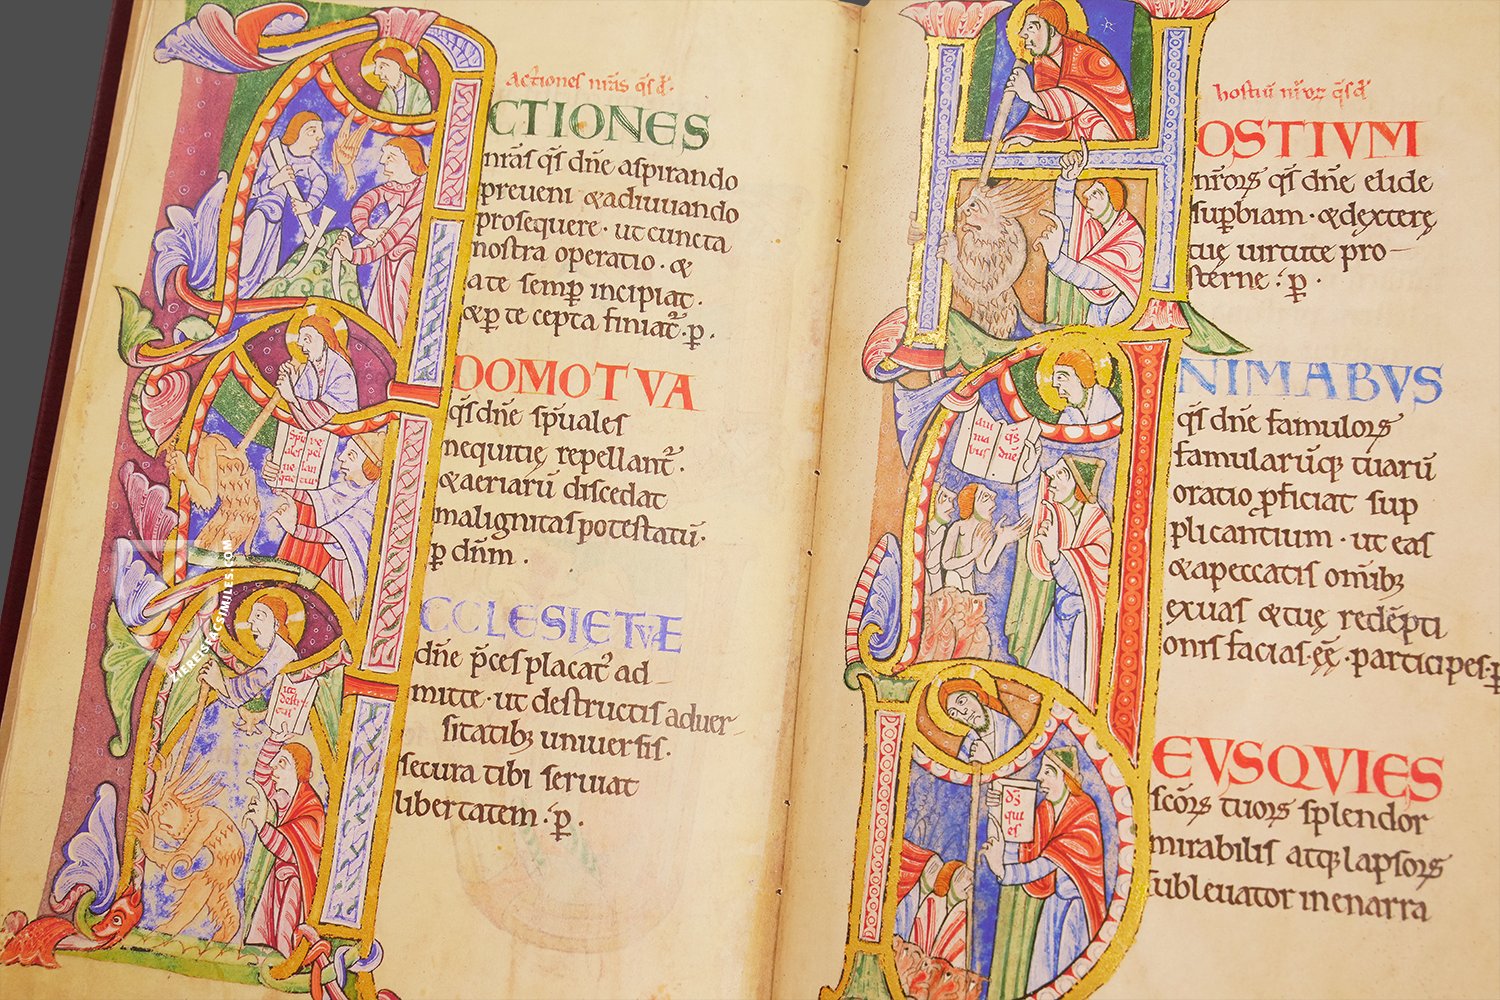 actiones nr̄as q̄s d̄
CTIONES
nr̄as q̄s dn̄e aspirando
preueni & adiuuando
prosequere · ut cuncta
nostra operatio · &
a te semp̲ incipiat ·
& p̲ te cepta finiat̄ · p̲ ·
DOMO TVA
q̄s dn̄e sp̄uales
nequitię repellant̄ ·
& aeriarū discedat
malignitas potestatū ·
p̲ dn̄m ·
CCLESIE TVE
dn̄e p̄ces placat̄ ad
mitte · ut destructis aduer-
sitatibꝫ uniuersis ·
secura tibi seruiat
libertatem · p̲ ·
spū
ales
ne
quit
re
pel
lan
tur
hostiū nr̄oꝝ q̄s d̄
OSTIVM
nr̄oꝝ q̄s dn̄e elide
sup̲biam · & dexterę
tuę uirtute pro-
sterne · p̲ ·
ani
ma
bus
q̄s
dn̄e
NIMABVS
q̄s dn̄e famuloꝝ
famularūq̨ tuarū
oratio ꝓficiat sup
plicantium · ut eas
& a peccatis om̄ibꝫ
exuas & tuę redēpti
onis facias · ēē · participes · p̲
d̄s
qui
es
EVS QVIES
sc̄oꝝ tuoꝝ splendor
mirabilis atq̨ lapsoꝝ
subleuator inenarra
ZIEREISFACSIMILES.COM